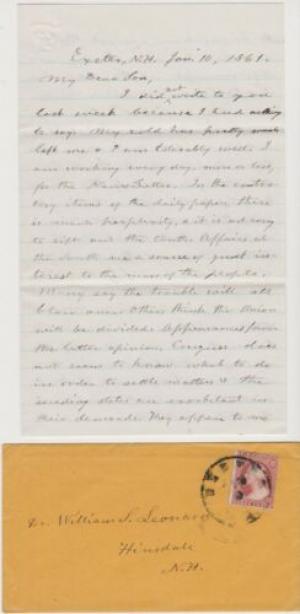 Exeter, N.H. Jan. 10, 1861.
My Dear Son,
I did not write to you
last week because I had nothing
to say. My cold has pretty much
left me & I am tolerably well. I
am working every day, more or less,
for the News Letter. In the contra-
dictory items of the daily paper there
is much perplexity, & it is not easy
to sift out the truth. Affairs at
the South are a source of great in-
terest to the mass of the people.
Many say the trouble will all
blow over. Others think the Union
will be divided. Appearances favor
the latter opinion. Congress does
not seem to know what to do
in order to settle matters & the
seceding states are exorbitant in
their demands. They appear to me
Dr. William S. Leonard
Hinsdale
N.H.